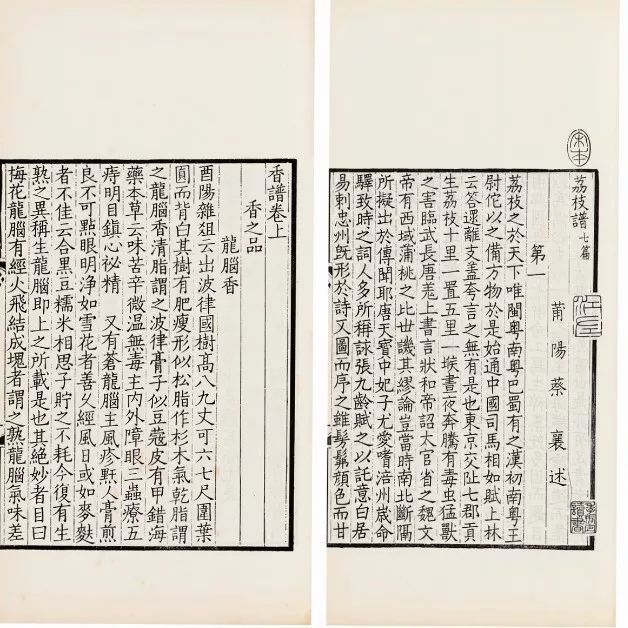 荔枝譜 七篇
宋本
莆陽蔡襄述
第一
荔枝之於天下唯閩粵南粵巴蜀有之漢初南粵王
尉佗以之備方物於是始通中國司馬相如賦上林
云答遝離支蓋夸言之無有是也東京交阯七郡貢
生荔枝十里一置五里一堠晝夜奔騰有毒虫猛獸
之害臨武長唐羌上書言狀和帝詔太官省之魏文
帝有西域蒲桃之比世譏其繆論豈當時南北斷隔
所擬出於傳聞耶唐天寶中妃子尤愛嗜涪州歲命
驛致時之詞人多所稱詠張九齡賦之以託意白居
易刺忠州旣形於詩又圖而序之雖髣髴顔色而甘
香譜卷上
香之品
龍腦香
酉陽雜俎云出波律國樹髙八九丈可六七尺圍葉
圓而背白其樹有肥瘦形似松脂作杉木氣乾脂謂
之龍腦香清脂謂之波律膏子似豆蔻皮有甲錯海
藥本草云味苦辛微温無毒主内外障眼三蟲療五
痔明目鎮心祕精 又有蒼龍腦主風疹䵟人膏煎
良不可點眼明淨如雪花者善久經風日或如麥麩
者不佳云合黑豆糯米相思子貯之不耗今復有生
熟之異稱生龍腦即上之所載是也其絶妙者目曰
梅花龍腦有經火飛結成塊者謂之熟龍腦氣味差